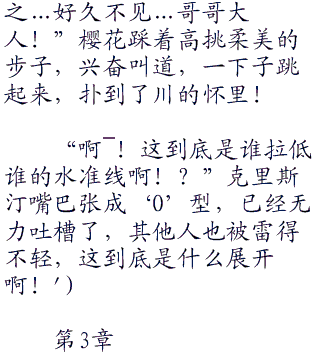 之…好久不见…哥哥大
人！”樱花踩着高挑柔美的
步子，兴奋叫道，一下子跳
起来，扑到了川的怀里！
“啊¯！这到底是谁拉低
谁的水准线啊！？”克里斯
汀嘴巴张成‘0’型，已经无
力吐槽了，其他人也被雷得
不轻，这到底是什么展开
啊！′）
第3章